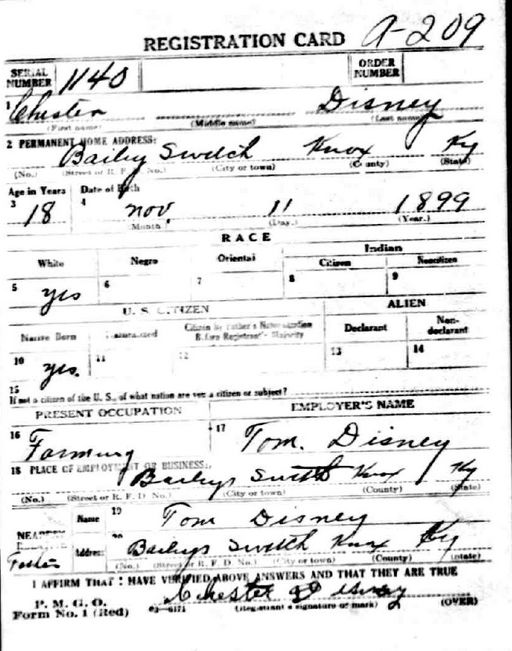 REGISTRATION CARD A-209
SERIAL NUMBER 1140 ORDER NUMBER
1 Chester Disney
(First name) (Middle name) (Last name)
2 PERMANENT HOME ADDRESS:
Bailey Switch Knox Ky
(No.) (Street or R. F. D. No.) (City or town) (County) (State)
Age in Years Date of Birth
3 18 4 Nov. 11 1899
(Month) (Day.) (Year.)
RACE
White Negro Oriental Indian
Citizen Noncitizen
5 yes 6 7 8 9
U. S. CITIZEN ALIEN
Native Born Naturalized Citizen by Father's Naturalization Before Registrant's Majority Declarant Non-declarant
10 yes. 11 12 13 14
15
If not a citizen of the U. S., of what nation are you a citizen or subject?
PRESENT OCCUPATION EMPLOYER'S NAME
16 Farming 17 Tom. Disney
18 PLACE OF EMPLOYMENT OR BUSINESS:
Baileys Switch Knox Ky
(No.) (Street or R. F. D. No.) (City or town) (County) (State)
Name 19 Tom Disney
NEAREST
Father Address 20 Baileys Switch Knox Ky
(No.) (Street or R. F. D. No.) (City or town) (County) (State)
I AFFIRM THAT I HAVE VERIFIED ABOVE ANSWERS AND THAT THEY ARE TRUE
P. M. G. O.
Form No. 1 (Red) 03-6171 Chester Disney
(Registrant's signature or mark) (OVER)